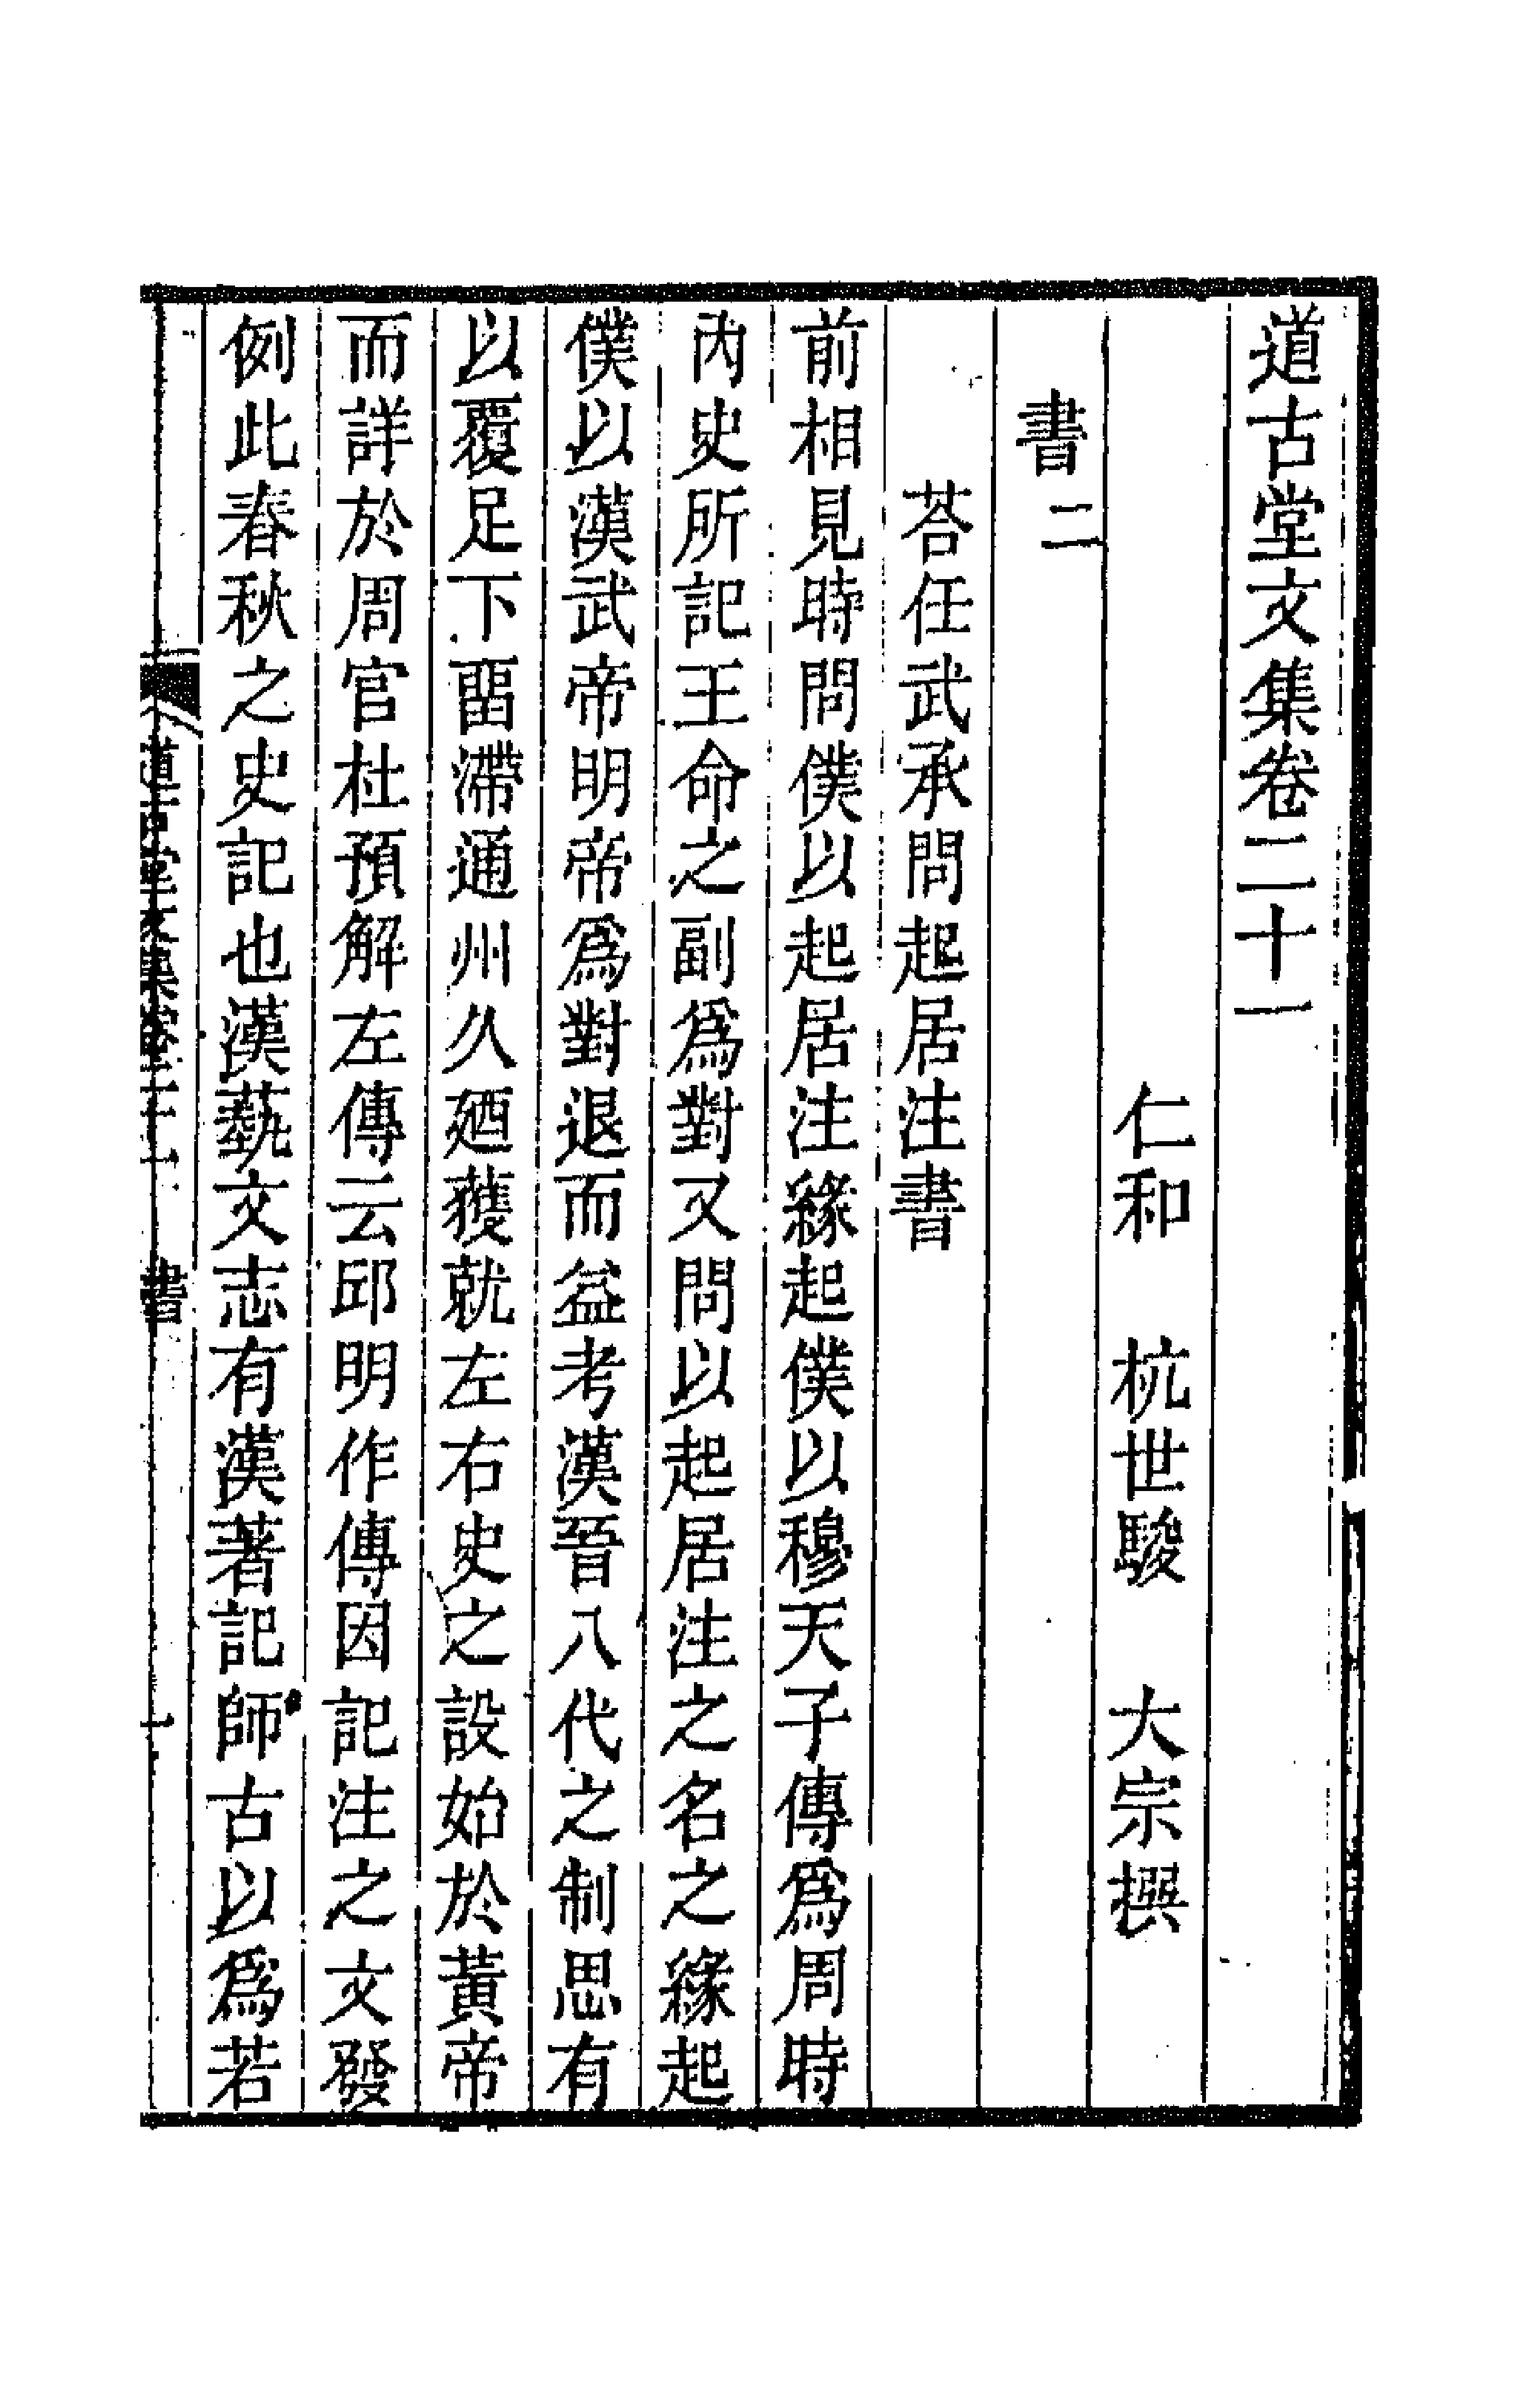 道古堂文集卷二十一
仁和　杭世駿　大宗撰
書二
荅任武承問起居注書
前相見時問僕以起居注緣起僕以穆天子傳爲周時
內史所記王命之副爲對又問以起居注之名之緣起
僕以漢武帝明帝爲對退而益考漢晉八代之制思有
以覆足下畱滯通州久廼獲就左右史之設始於黃帝
而詳於周官杜預解左傳云邱明作傳因記注之文發
例此春秋之史記也漢藝文志有漢著記師古以爲若
道古堂文集卷二十一　書　一